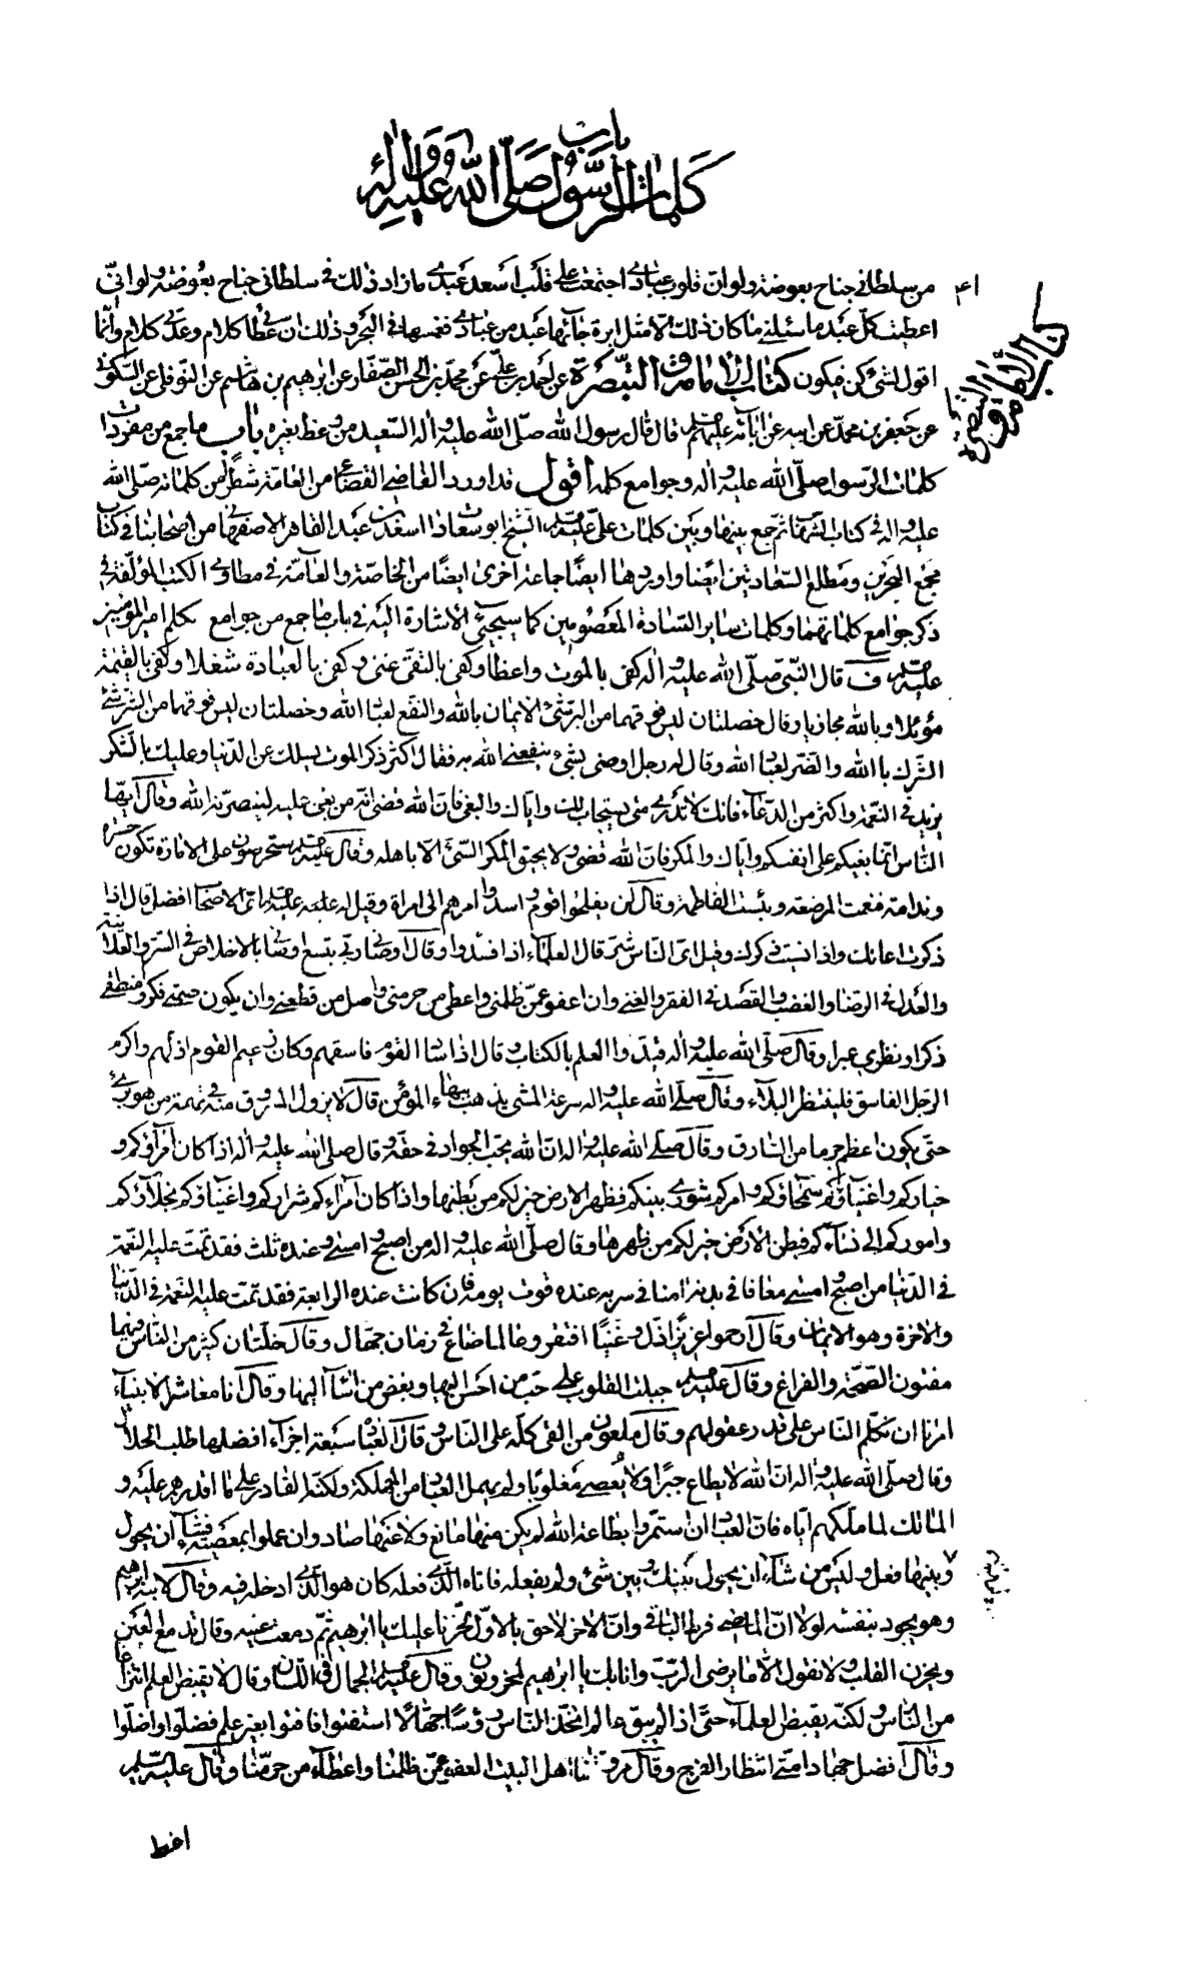 باب
كلمات الرسول صلى الله عليه وآله
٤١
من سلطاني جناح بعوضة ولو ان قلوب عبادي اجتمعت على قلب اسعد عبدي ما زاد ذلك في سلطاني جناح بعوضة ولو اني
اعطيت كل عبد ما سئلني ما كان ذلك الا مثل ابرة جاء بها عبد من عبادي فغمسها في البحر وذلك ان عطائي كلام وعدتي كلام وانما
اقول لشئ كن فيكون كتاب الامامة والتبصرة عن احمد بن علي عن محمد بن الحسن الصفار عن ابراهيم بن هاشم عن النوفلي عن السكوني
عن جعفر بن محمد عن ابيه عن آبائه عليهم السلام قال قال رسول الله صلى الله عليه وآله السعيد من وعظ بغيره باب ما جمع من مفردات
كلمات الرسول صلى الله عليه وآله وجوامع كلمه اقول قد اورد القاضي القضاعي من العامة شطرا من كلماته صلى الله
عليه وآله في كتاب الشهاب ثم جمع بينها وبين كلمات علي عليه السلام الشيخ ابو السعادات اسعد بن عبد القاهر الاصفهاني من اصحابنا في كتاب
مجمع البحرين ومطلع السعادتين ايضا واوردها ايضا جماعة اخرى ايضا من الخاصة والعامة في مطاوي الكتب المؤلفة في
ذكر جوامع كلماتهما وكلمات ساير السادة المعصومين كما سيجئ الاشارة اليه في باب ما جمع من جوامع كلم امير المؤمنين
عليه السلام ف قال النبي صلى الله عليه وآله كفى بالموت واعظا وكفى بالتقى غنى وكفى بالعبادة شغلا وكفى بالقيمة
موئلا وبالله مجازيا وقال خصلتان ليس فوقهما من البر شئ الايمان بالله والنفع لعباد الله وخصلتان ليس فوقهما من الشر شئ
الشرك بالله والضر لعباد الله وقال له رجل اوصني بشئ ينفعني الله به فقال اكثر ذكر الموت يسلك عن الدنيا وعليك بالشكر
يزيد في النعمة واكثر من الدعاء فانك لا تدري متى يستجاب لك واياك والبغي فان الله قضى انه من بغي عليه لينصرنه الله وقال ايها
الناس انما بغيكم على انفسكم واياك والمكر فان الله قضى ولا يحيق المكر السيئ الا باهله وقال عليه السلام ستحرصون على الامارة ثم تكون حسرة
وندامة فنعمت المرضعة وبئست الفاطمة وقال لن يفلح قوم اسدوا امرهم الى امراة وقيل له عليه السلام اي الاصحاب افضل قال اذا
ذكرت اعانك واذا نسيت ذكرك وقيل اي الناس شر قال العلماء اذا فسدوا وقال اوصاني ربي بتسع اوصاني بالاخلاص في السر والعلانية
والعدل في الرضا والغضب والقصد في الفقر والغنى وان اعفو عمن ظلمني واعطي من حرمني واصل من قطعني وان يكون صمتي فكرا ومنطقي
ذكرا ونظري عبرا وقال صلى الله عليه وآله قيدوا العلم بالكتاب وقال اذا ساد القوم فاسقهم وكان زعيم القوم اذلهم واكرم
الرجل الفاسق فلينتظر البلاء وقال صلى الله عليه وآله سرعة المشي يذهب ببهاء المؤمن قال لا يزول المسروق منه في تهمة من هو بري
حتى يكون اعظم جرما من السارق وقال صلى الله عليه وآله ان الله يحب الجواد في حقه وقال صلى الله عليه وآله اذا كان امراؤكم
خياركم واغنياؤكم سمحاؤكم وامركم شورى بينكم فظهر الارض خير لكم من بطنها واذا كان امراءكم شراركم واغنياؤكم بخلاؤكم
واموركم الى نساءكم فبطن الارض خير لكم من ظهرها وقال صلى الله عليه وآله من اصبح وامسى وعنده ثلث فقد تمت عليه النعمة
في الدنيا من اصبح وامسى معافا في بدنه آمنا في سربه عنده قوت يومه فان كانت عنده الرابعة فقد تمت عليه النعمة في الدنيا
والاخرة وهو الايمان وقال ارحموا عزيزا ذل وغنيا افتقر وعالما ضاع في زمان جهال وقال خلتان كثير من الناس فيهما
مفتون الصحة والفراغ وقال عليه السلام جبلت القلوب على حب من احسن اليها وبغض من اساء اليها وقال انا معاشر الانبياء
امرنا ان نكلم الناس على قدر عقولهم وقال ملعون من القى كله على الناس وقال العبادة سبعة اجزاء افضلها طلب الحلال
وقال صلى الله عليه وآله ان الله لا يطاع جبرا ولا يعصى مغلوبا ولم يهمل العباد من المملكة ولكنه القادر على ما اقدرهم عليه و
المالك لما ملكهم اياه فان العباد ان استمروا بطاعة الله لم يكن منها مانع ولا عنها صاد وان عملوا بمعصيته فشاء ان يحول
بينهم وبينها فعل وليس من شاء ان يحول بينك وبين شئ ولم يفعله فاتاه الذي فعله كان هو الذي ادخله فيه وقال لابنه ابرهيم
وهو يجود بنفسه لولا ان الماضي فرط الباقي وان الاخر لاحق بالاول لحزنا عليك يا ابرهيم ثم دمعت عينه وقال تدمع العين
ويحزن القلب ولا نقول الا ما يرضى الرب وانا بك يا ابرهيم لمحزونون وقال عليه السلام الجمال في اللسان وقال لا يقبض العلم انتزاعا
من الناس ولكنه يقبض العلماء حتى اذا لم يبق عالم اتخذ الناس رؤسا جهالا استفتوا فافتوا بغير علم فضلوا واضلوا
وقال افضل جهاد امتي انتظار الفرج وقال مروتنا اهل البيت العفو عمن ظلمنا واعطاء من حرمنا وقال عليه السلام
اغبط